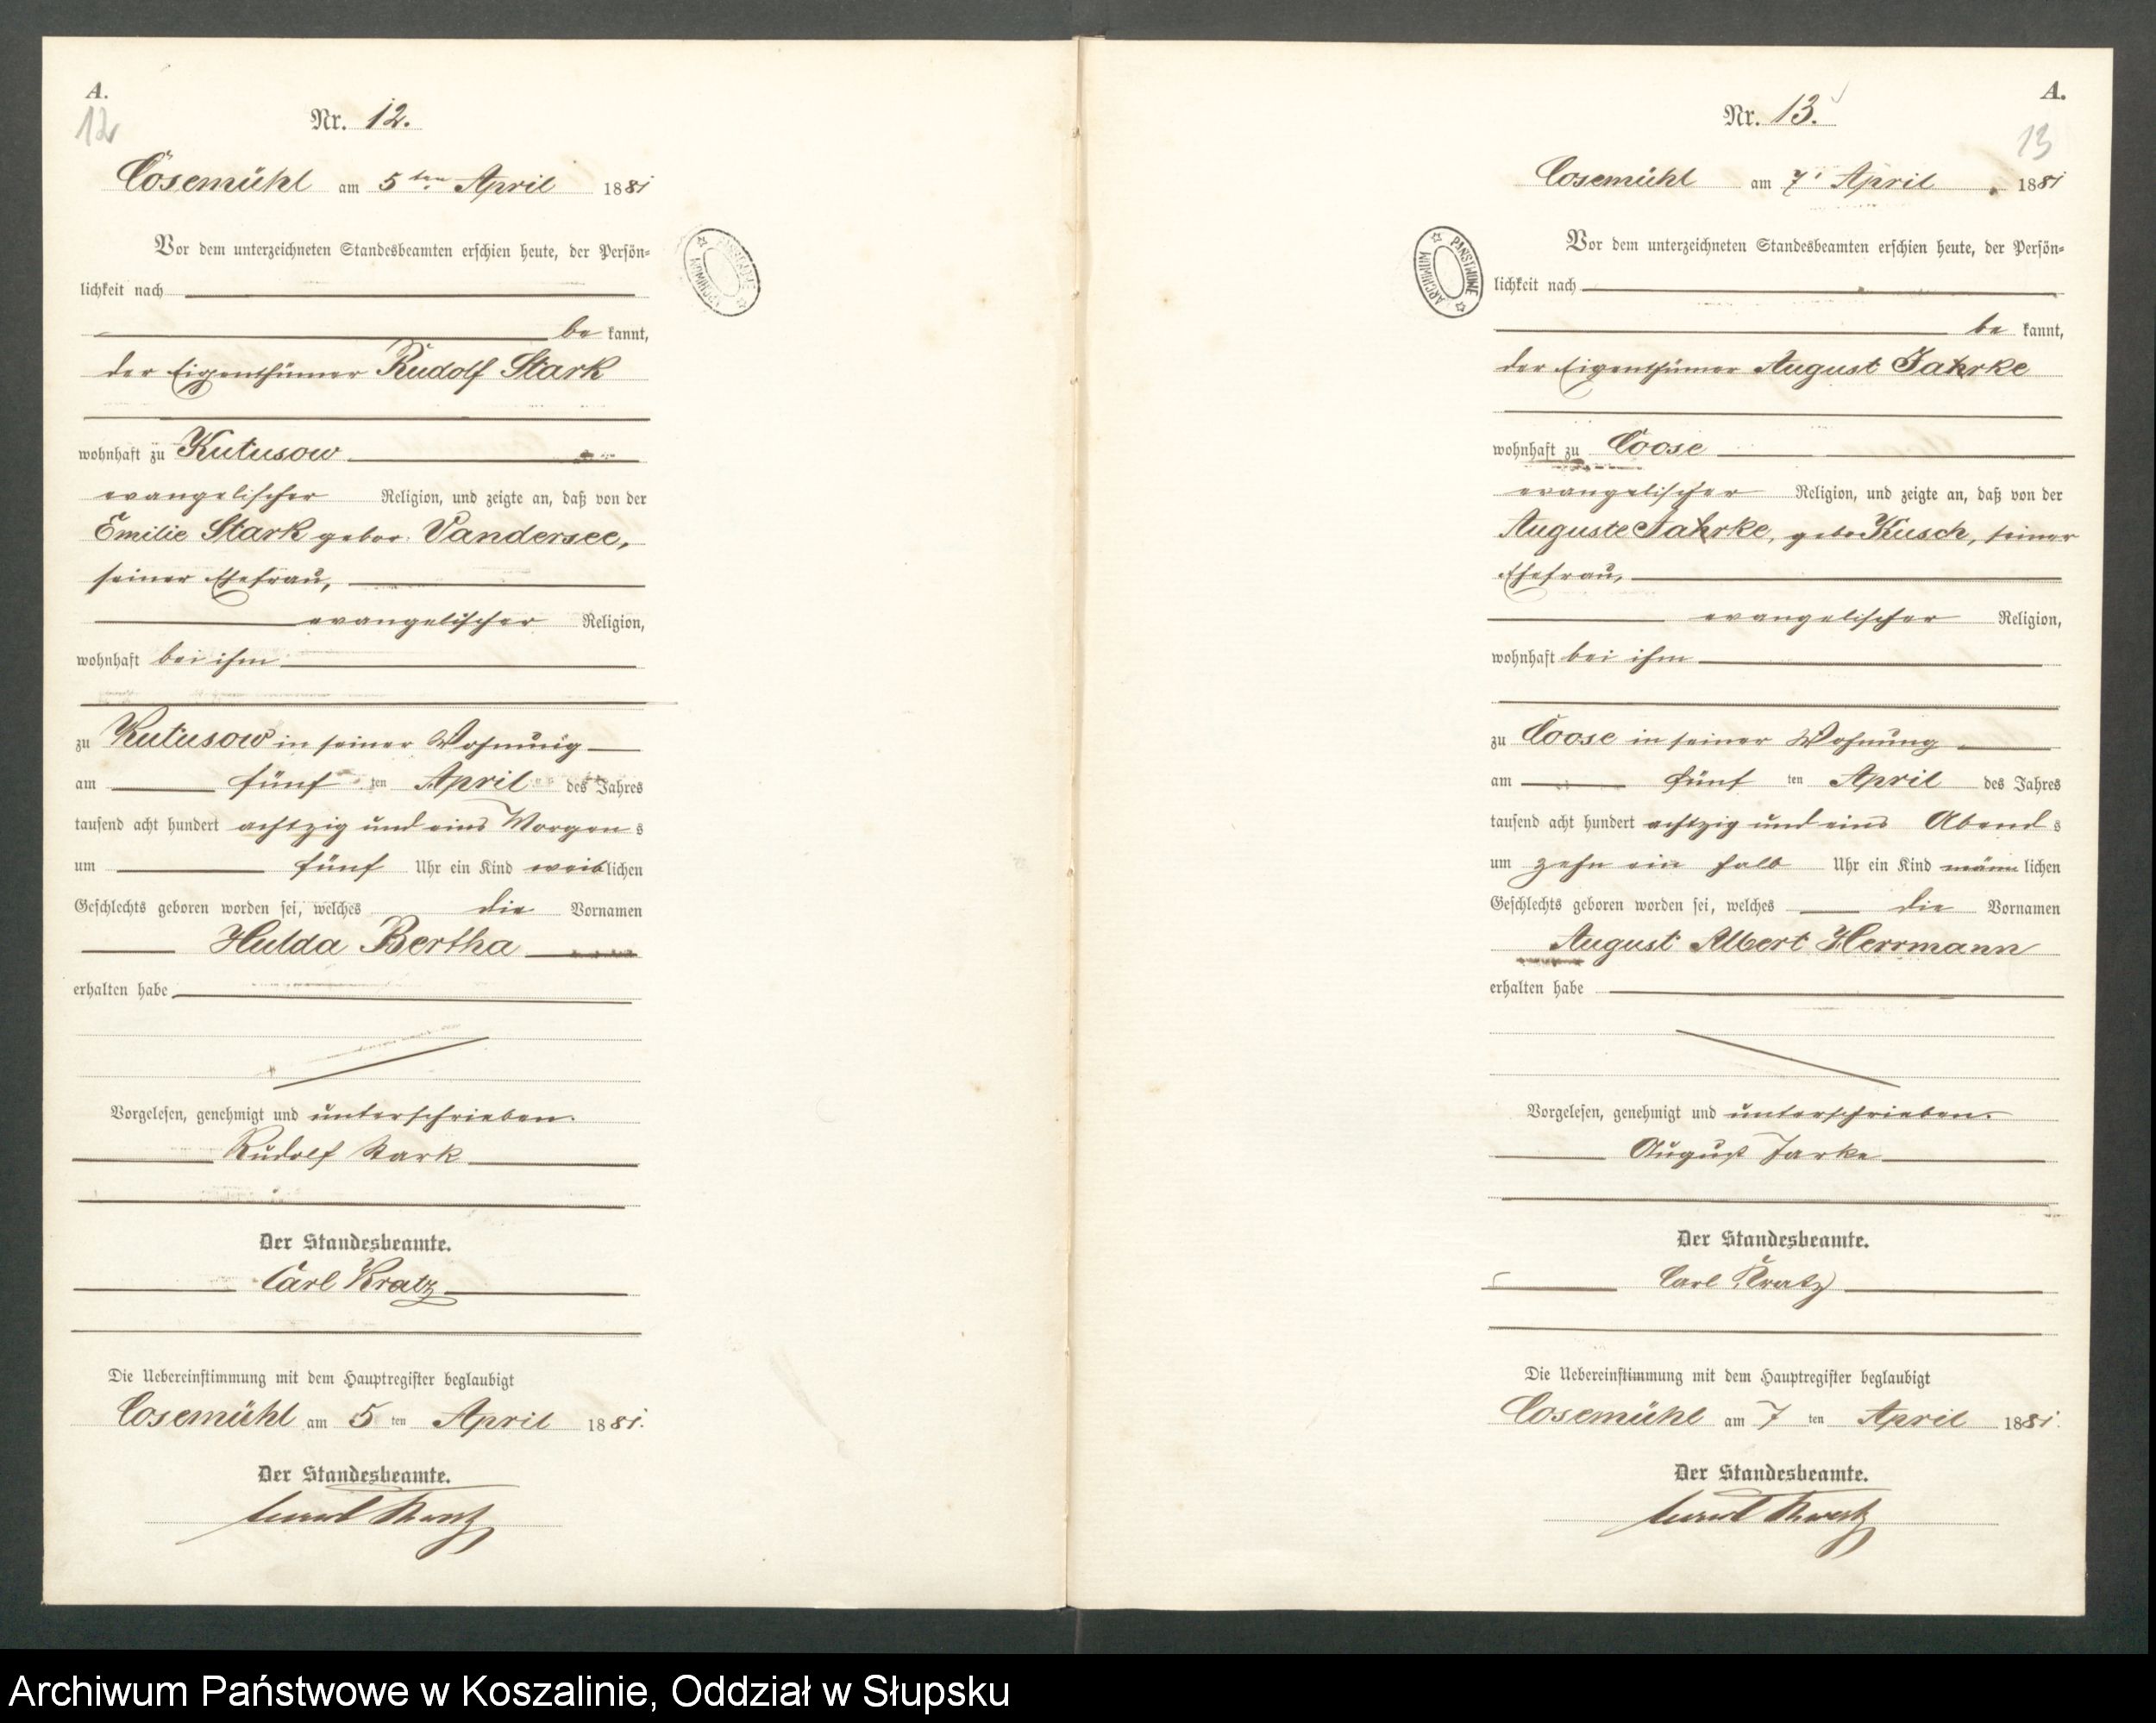 A.
12
Nr. 12.
Cosemühl am 5ten April 1881
Vor dem unterzeichneten Standesbeamten erschien heute, der Persön-
lichkeit nach
be kannt,
der Eigenthümer Rudolf Stark
wohnhaft zu Kutusow
evangelischer Religion, und zeigte an, daß von der
Emilie Stark gebor. Vandersee,
seiner Ehefrau,
evangelischer Religion,
wohnhaft bei ihm
zu Kutusow in seiner Wohnung
am fünf ten April des Jahres
tausend acht hundert achtzig und eins Morgen s
um fünf Uhr ein Kind weiblichen
Geschlechts geboren worden sei, welches die Vornamen
Hulda Bertha
erhalten habe
Vorgelesen, genehmigt und unterschrieben.
Rudolf Stark
Der Standesbeamte.
Carl Kratz
Die Uebereinstimmung mit dem Hauptregister beglaubigt
Cosemühl am 5 ten April 1881.
Der Standesbeamte.
Carl Kratz
ARCHIWUM PAŃSTWOWE
A.
13
Nr. 13.
Cosemühl am 7. April 1881
Vor dem unterzeichneten Standesbeamten erschien heute, der Persön-
lichkeit nach
be kannt,
der Eigenthümer August Jahrke
wohnhaft zu Coose
evangelischer Religion, und zeigte an, daß von der
Auguste Jahrke, gebor Kusch, seiner
Ehefrau,
evangelischer Religion,
wohnhaft bei ihm
zu Coose in seiner Wohnung
am fünf ten April des Jahres
tausend acht hundert achtzig und eins Abend s
um zehn ein halb Uhr ein Kind männ lichen
Geschlechts geboren worden sei, welches die Vornamen
August Albert Herrmann
erhalten habe
Vorgelesen, genehmigt und unterschrieben.
August Jarke
Der Standesbeamte.
Carl Kratz
Die Uebereinstimmung mit dem Hauptregister beglaubigt
Cosemühl am 7 ten April 1881.
Der Standesbeamte.
Carl Kratz
ARCHIWUM PAŃSTWOWE
Archiwum Państwowe w Koszalinie, Oddział w Słupsku